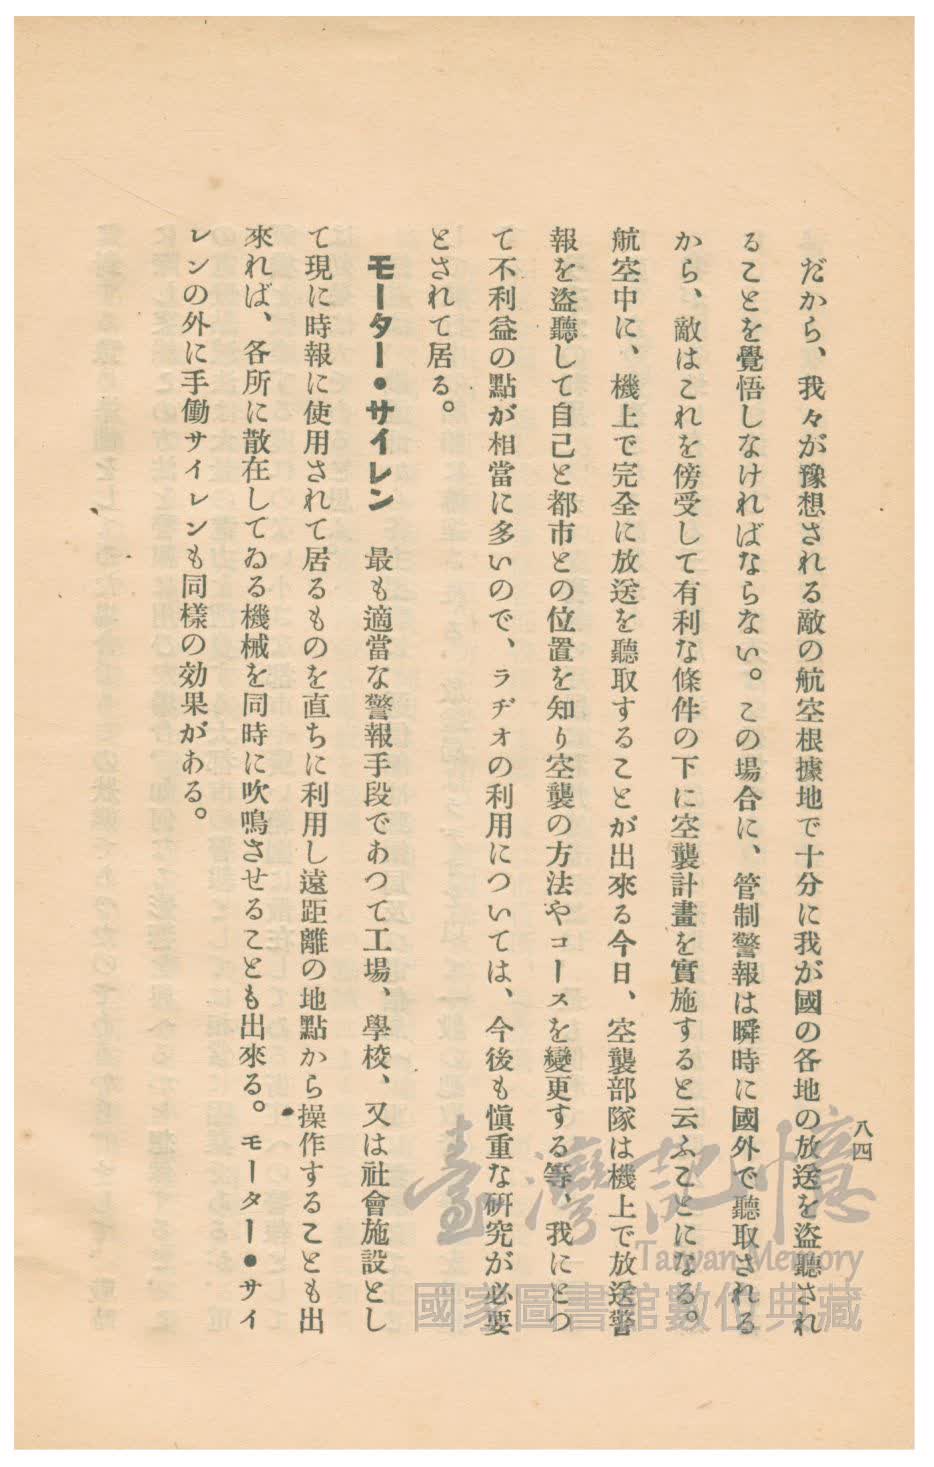 八四
だから、我々が豫想される敵の航空根據地で十分に我が國の各地の放送を盜聽され
ることを覺悟しなければならない。この場合に、管制警報は瞬時に國外で聽取される
から、敵はこれを傍受して有利な條件の下に空襲計畫を實施すると云ふことになる。
航空中に、機上で完全に放送を聽取することが出來る今日、空襲部隊は機上で放送警
報を盜聽して自己と都市との位置を知り空襲の方法やコースを變更する等、我にとつ
て不利益の點が相當に多いので、ラヂオの利用については、今後も愼重な硏究が必要
とされて居る。
モーター・サイレン　最も適當な警報手段であつて工場、學校、又は社會施設とし
て現に時報に使用されて居るものを直ちに利用し遠距離の地點から操作することも出
來れば、各所に散在してゐる機械を同時に吹鳴させることも出來る。モーター・サイ
レンの外に手働サイレンも同樣の効果がある。
臺灣記憶
Taiwan Memory
國家圖書館數位典藏